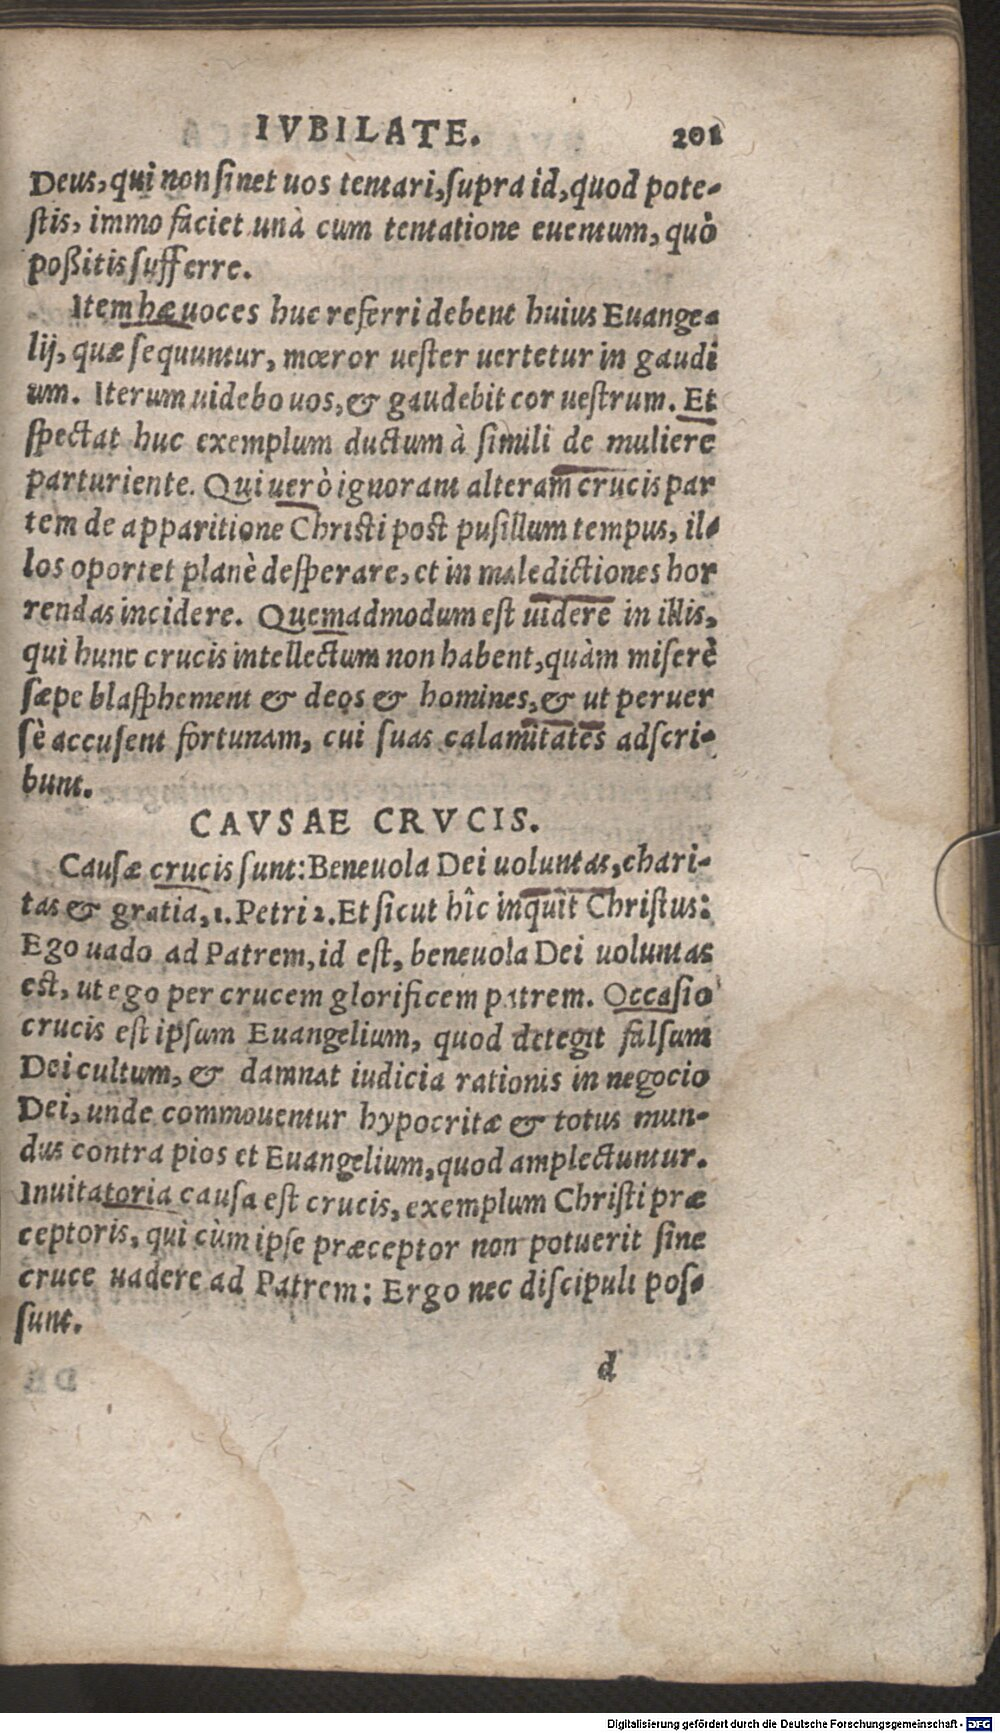 IVBILATE. 201
Deus, qui non sinet uos tentari, supra id, quod pote-
stis, immo faciet unà cum tentatione euentum, quò
poßitis sufferre.
Item hæ uoces huc referri debent huius Euange-
lij, quæ sequuntur, mœror uester uertetur in gaudi
um. Iterum uidebo uos, & gaudebit cor uestrum. Et
spectat huc exemplum ductum à simili de muliere
parturiente. Qui uerò ignorant alteram crucis par
tem de apparitione Christi post pusillum tempus, il-
los oportet planè desperare, et in maledictiones hor
rendas incidere. Quemadmodum est uidere in illis,
qui hunc crucis intellectum non habent, quàm miserè
sæpe blasphement & deos & homines, & ut peruer
sè accusent fortunam, cui suas calamitates adscri-
bunt.
CAVSAE CRVCIS.
Causæ crucis sunt: Beneuola Dei uoluntas, chari-
tas & gratia, 1. Petri 2. Et sicut hîc inquit Christus:
Ego uado ad Patrem, id est, beneuola Dei uoluntas
est, ut ego per crucem glorificem patrem. Occasio
crucis est ipsum Euangelium, quod detegit falsum
Dei cultum, & damnat iudicia rationis in negocio
Dei, unde commouentur hypocritæ & totus mun-
dus contra pios et Euangelium, quod amplectuntur.
Inuitatoria causa est crucis, exemplum Christi præ
ceptoris, qui cùm ipse præceptor non potuerit sine
cruce uadere ad Patrem: Ergo nec discipuli pos-
sunt.
d
Digitalisierung gefördert durch die Deutsche Forschungsgemeinschaft - DFG